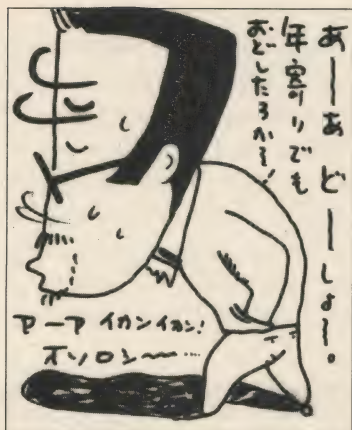 あーあ どーしよー。
年寄りでも
おどしたろかー!
アーア イカンイカン!
オソロシ〜〜…